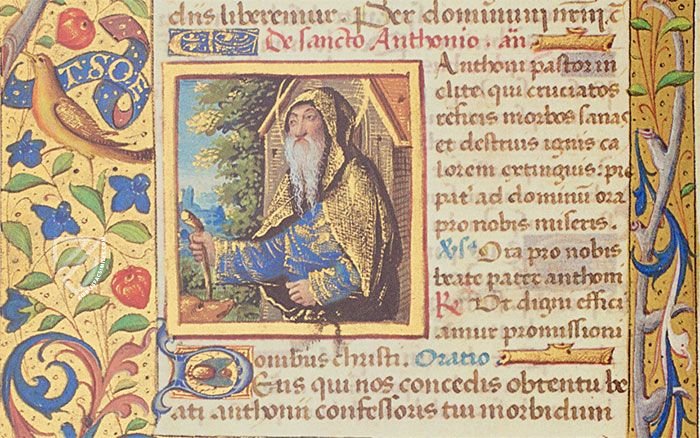 diis liberemur. Per dominum
De sancto Anthonio. añ
TSOE
Anthoni pastor in
clite qui cruciatos
reficis morbos sanas
et destruis ignis ca
lorem extinguis: pie
pater ad dominū ora
pro nobis miseris.
Ora pro nobis
beate pater anthoni
Re Ut digni effici
amur promissioni
bus christi. Oratio
Deus qui nos concedis obtentu be
ati anthonii confessoris tui morbidum